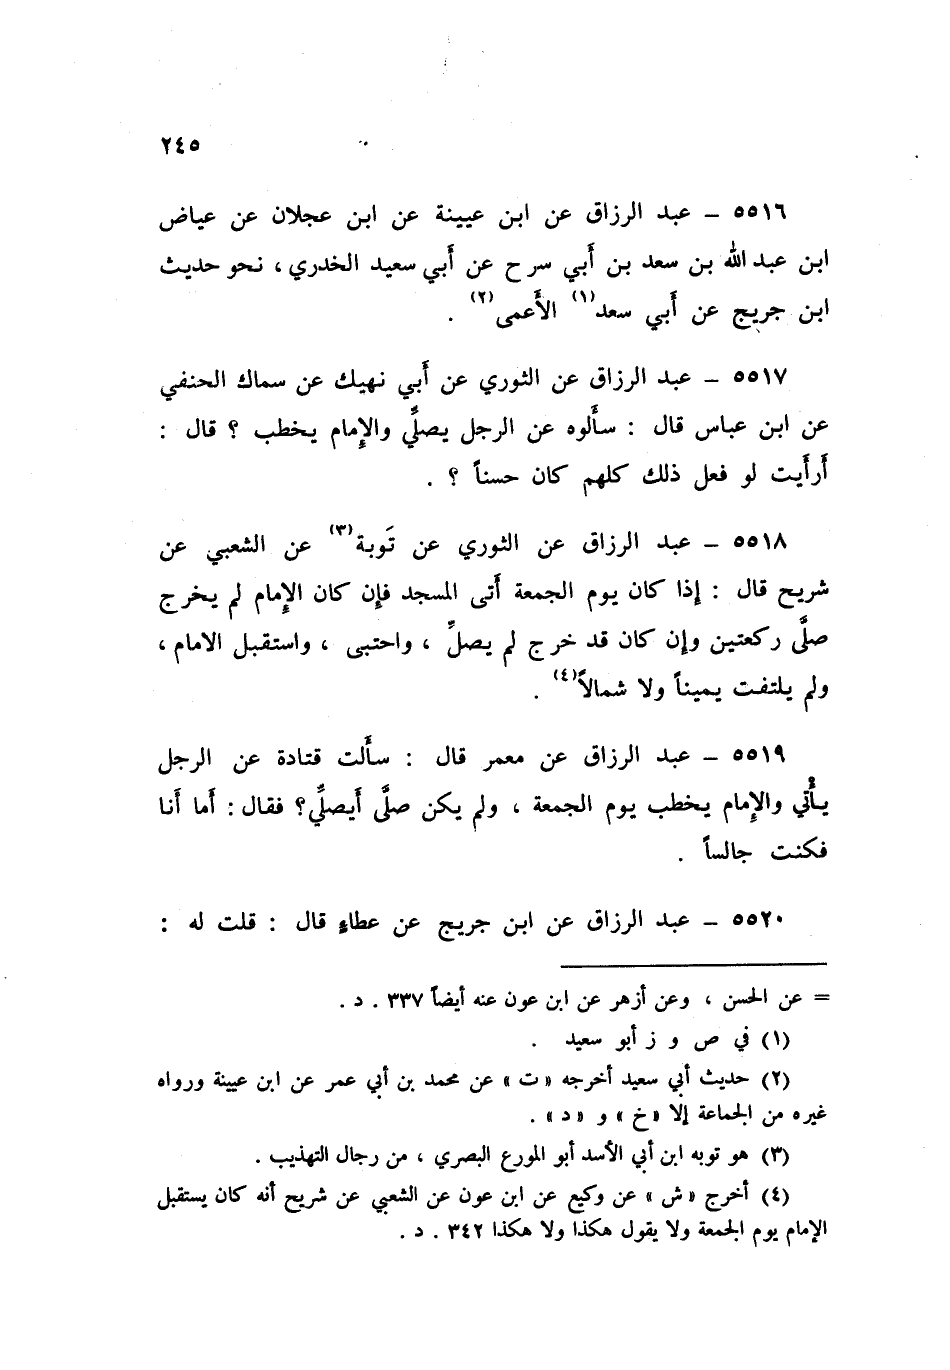 ٢٤٥
٥٥١٦ – عبد الرزاق عن ابن عيينة عن ابن عجلان عن عياض
ابن عبد الله بن سعد بن أبي سرح عن أبي سعيد الخدري ، نحو حديث
ابن جريج عن أبي سعد(١) الأعمى(٢) .
٥٥١٧ – عبد الرزاق عن الثوري عن أبي نهيك عن سماك الحنفي
عن ابن عباس قال : سألوه عن الرجل يصلِّي والإمام يخطب ؟ قال :
أرأيت لو فعل ذلك كلهم كان حسناً ؟ .
٥٥١٨ – عبد الرزاق عن الثوري عن تَوبة(٣) عن الشعبي عن
شريح قال : إذا كان يوم الجمعة أتى المسجد فإن كان الإمام لم يخرج
صلَّى ركعتين وإن كان قد خرج لم يصلِّ ، واحتبى ، واستقبل الامام ،
ولم يلتفت يميناً ولا شمالاً(٤) .
٥٥١٩ – عبد الرزاق عن معمر قال : سألت قتادة عن الرجل
يأتي والإمام يخطب يوم الجمعة ، ولم يكن صلَّى أيصلِّي؟ فقال : أما أنا
فكنت جالساً .
٥٥٢٠ – عبد الرزاق عن ابن جريج عن عطاءٍ قال : قلت له :
= عن الحسن ، وعن أزهر عن ابن عون عنه أيضاً ٣٣٧ . د .
(١) في ص و ز أبو سعيد .
(٢) حديث أبي سعيد أخرجه «ت» عن محمد بن أبي عمر عن ابن عيينة ورواه
غيره من الجماعة إلا «خ» و «د» .
(٣) هو توبه ابن أبي الأسد أبو المورع البصري ، من رجال التهذيب .
(٤) أخرج «ش» عن وكيع عن ابن عون عن الشعبي عن شريح أنه كان يستقبل
الإمام يوم الجمعة ولا يقول هكذا ولا هكذا ٣٤٢ . د .